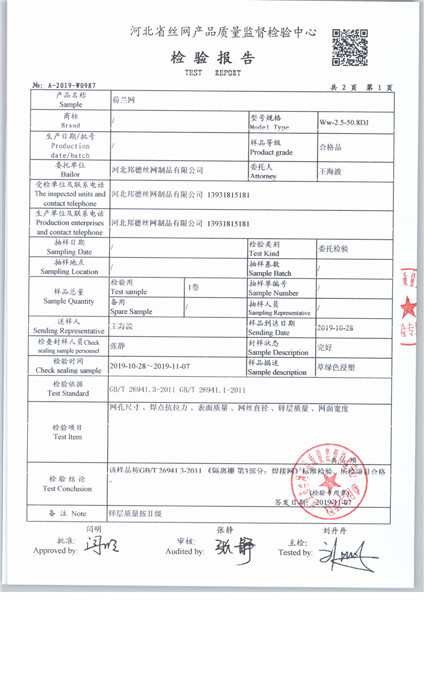 河北省丝网产品质量监督检验中心
检验报告
TEST REPORT
№: A-2019-W0987
共 2 页 第 1 页
产品名称
Sample
荷兰网
商标
Brand
/
型号规格
Model Type
Ww-2.5-50.8DJ
生产日期/批号
Production
date/batch
/
样品等级
Product grade
合格品
委托单位
Bailor
河北邦德丝网制品有限公司
委托人
Attorney
王海波
受检单位及联系电话
The inspected units and
contact telephone
河北邦德丝网制品有限公司 13931815181
生产单位及联系电话
Production enterprises
and contact telephone
河北邦德丝网制品有限公司 13931815181
抽样日期
Sampling Date
/
检验类别
Test Kind
委托检验
抽样地点
Sampling Location
/
抽样基数
Sample Batch
/
样品总量
Sample Quantity
检验用
Test sample
1卷
抽样单编号
Sample Number
/
备用
Spare Sample
/
抽样人员
Sampling Representative
/
送样人
Sending Representative
王海波
样品到达日期
Sending Date
2019-10-28
检查封样人员Check
sealing sample personnel
张静
封样状态
Sample Description
完好
检验时间
Check sealing sample
2019-10-28～2019-11-07
样品描述
Sample description
草绿色浸塑
检验依据
Test Standard
GB/T 26941.3-2011 GB/T 26941.1-2011
检验项目
Test Item
网孔尺寸、焊点抗拉力、表面质量、网丝直径、锌层质量、网面宽度
检验结论
Test Conclusion
该样品按GB/T 26941.3-2011 《隔离栅 第3部分：焊接网》标准检验，所检项目合格。
(检验专用章)
签发日期: 2019-11-07
备注 Note
锌层质量按Ⅱ级
闫明
张静
刘丹丹
批准:
Approved by:
审核:
Audited by:
主检:
Tested by: